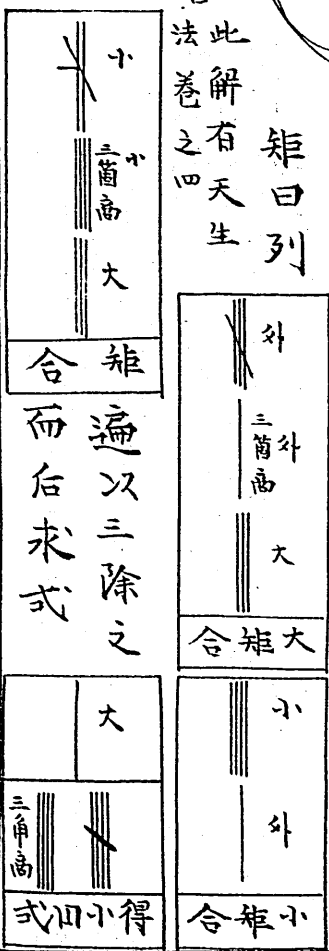 矩曰列
此解有天生
法巻之四
外
外
三箇商
大
大矩合
小
外
小矩合
小
小
三箇商
大
矩合
遍以三除之
而后求式
大
三角商
得小旧式